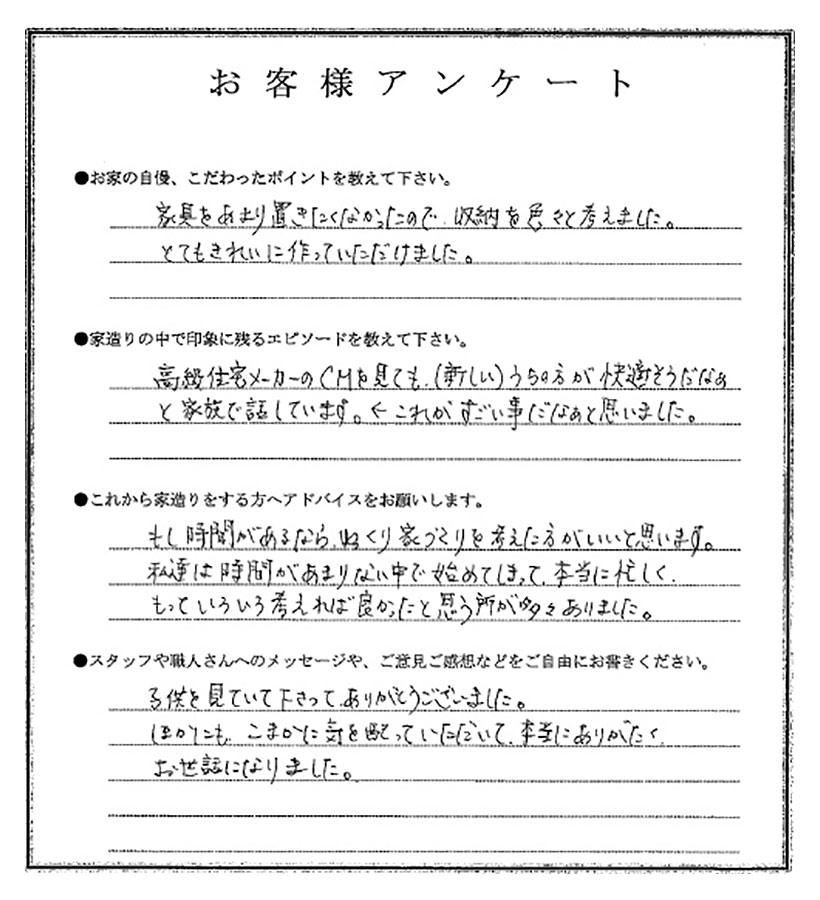 お客様アンケート
●お家の自慢、こだわったポイントを教えて下さい。
家具をあまり置きたくなかったので、収納を色々と考えました。
とてもきれいに作っていただけました。
●家造りの中で印象に残るエピソードを教えて下さい。
高級住宅メーカーのCMを見ても、(新しい)うちの方が快適そうだなぁ
と家族で話しています。←これがすごい事だなぁと思いました。
●これから家造りをする方へアドバイスをお願いします。
もし時間があるなら、ゆっくり家づくりを考えた方がいいと思います。
私達は時間があまりない中で始めてしまって、本当に忙しく、
もっといろいろ考えれば良かったと思う所が多々ありました。
●スタッフや職人さんへのメッセージや、ご意見ご感想などをご自由にお書きください。
子供を見ていて下さって、ありがとうございました。
ほかにも、こまかに気を配っていただいて、本当にありがたく、
お世話になりました。